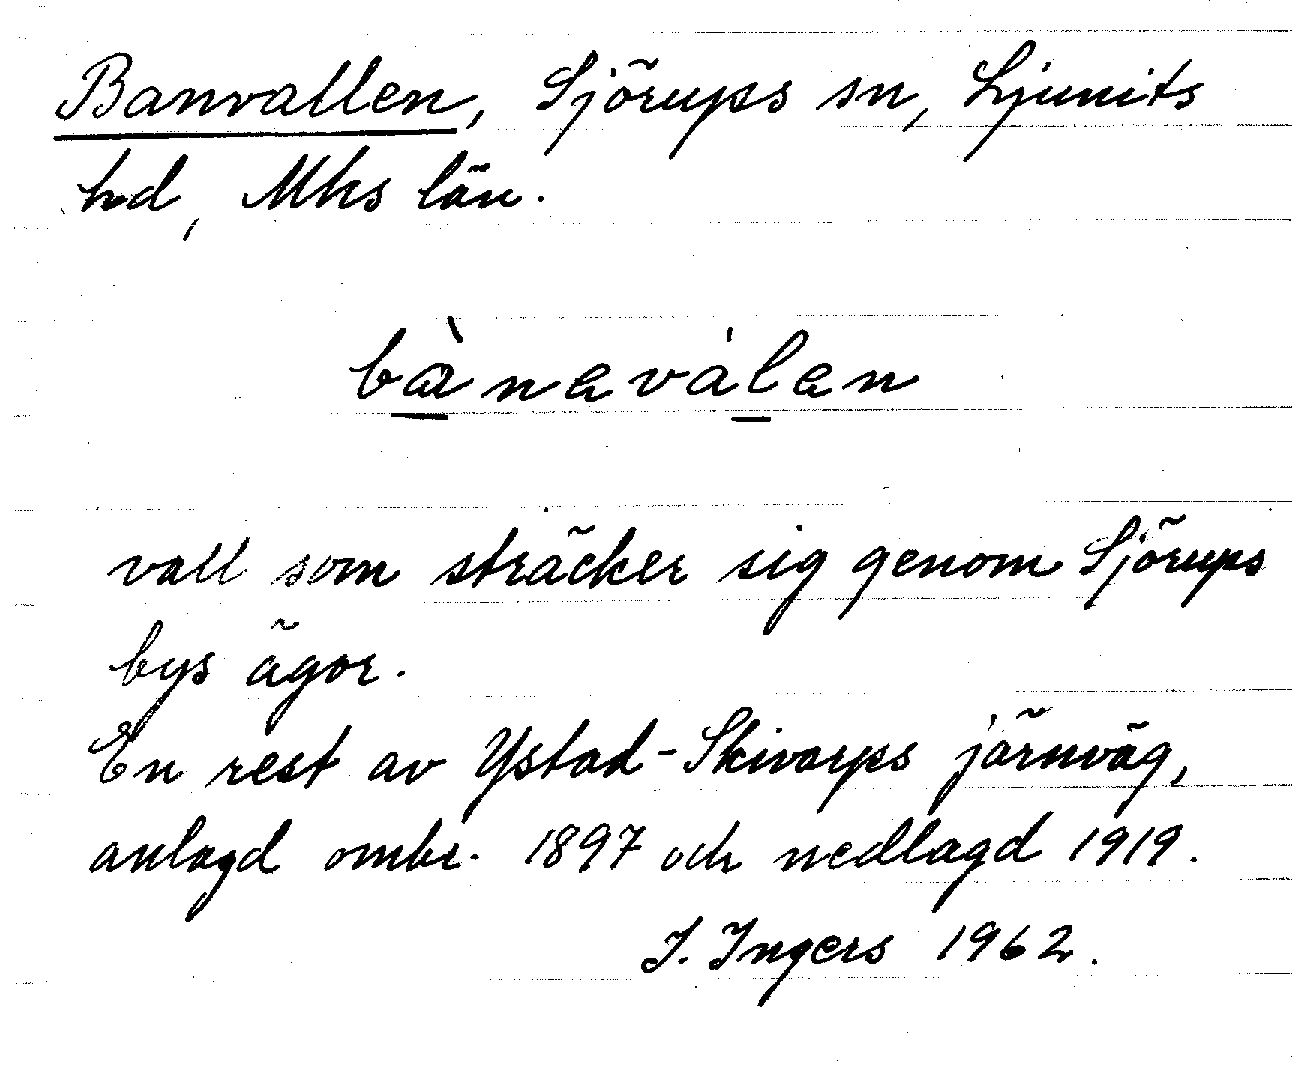 Banvallen, Sjörups sn, Ljunits
hd, Mhs län.
bànavàlan
vall som sträcker sig genom Sjörups
bys ägor.
En rest av Ystad-Skivarps järnväg,
anlagd omkr. 1897 och nedlagd 1919.
I. Ingers 1962.